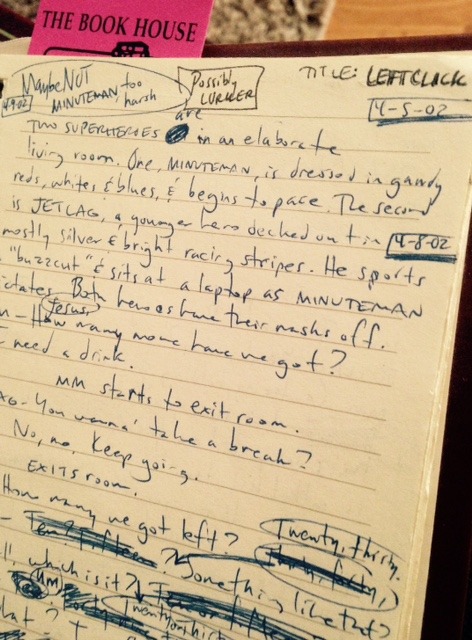 THE BOOK HOUSE
TITLE: LEFTCLICK
Maybe NOT
MINUTEMAN, too
harsh
Possibly
LURKER
4-9-02
4-5-02
are
TWO SUPERHEROES in an elaborate
living room. One, MINUTEMAN, is dressed in gawdy
reds, whites & blues, & begins to pace. The second
is JETLAG, a younger hero decked out in
4-8-02
mostly silver & bright racing stripes. He sports
"buzzcut" & sits at a laptop as MINUTEMAN
Both heroes have their masks off.
Jesus,
How many more have we got?
need a drink.
MM starts to exit room.
You wanna' take a break?
No, no. Keep going.
EXITS room.
How many we got left?
Twenty, thirty.
Ten? Fifteen?
Something like that?
which is it?
MM